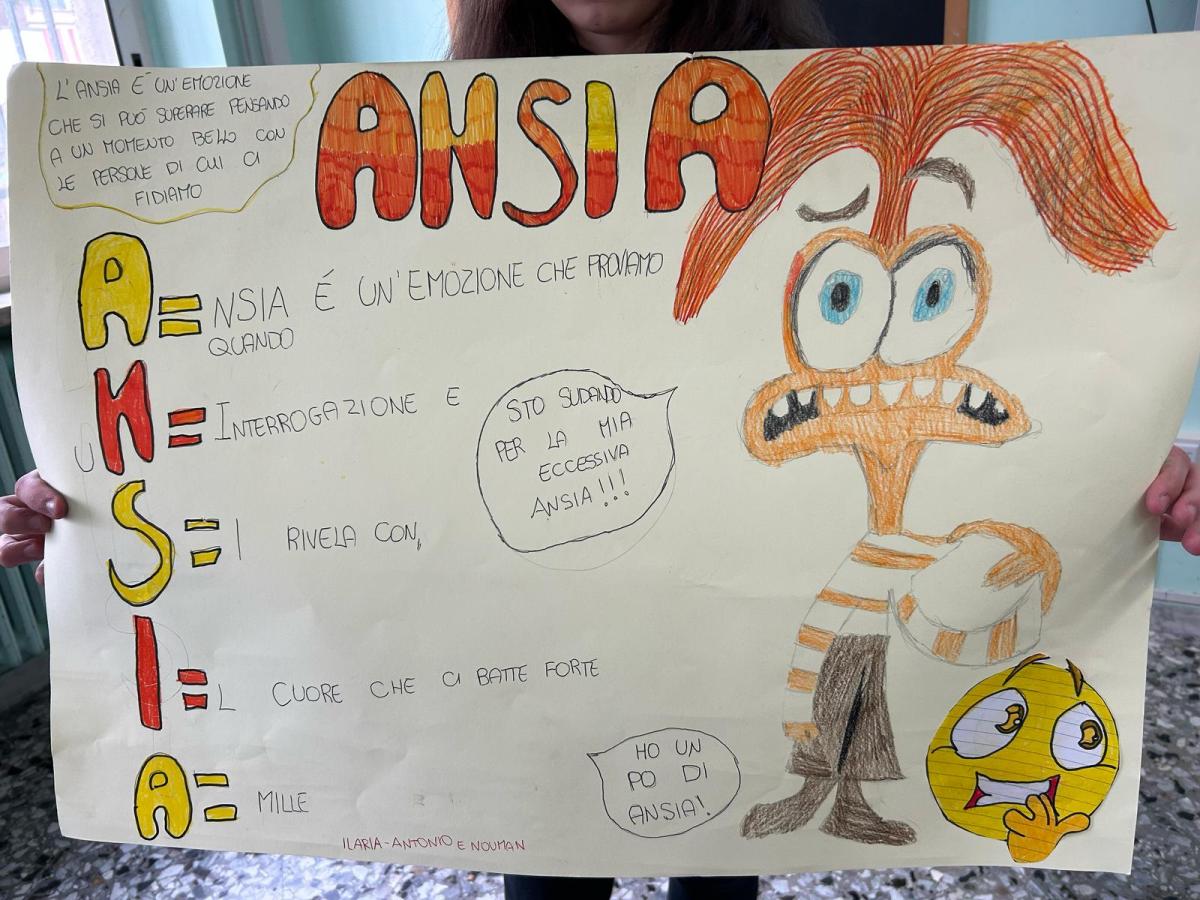 L'ANSIA É UN'EMOZIONE
CHE SI PUÓ SUPERARE PENSANDO
A UN MOMENTO BELLO CON
LE PERSONE DI CUI CI
FIDIAMO
ANSIA
A = NSIA É UN'EMOZIONE CHE PROVIAMO
QUANDO
N = INTERROGAZIONE E
U
S = I RIVELA CON,
I = L CUORE CHE CI BATTE FORTE
A = MILLE
STO SUDANDO
PER LA MIA
ECCESSIVA
ANSIA!!!
HO UN
PO DI
ANSIA!
ILARIA-ANTONIO E NOUMAN